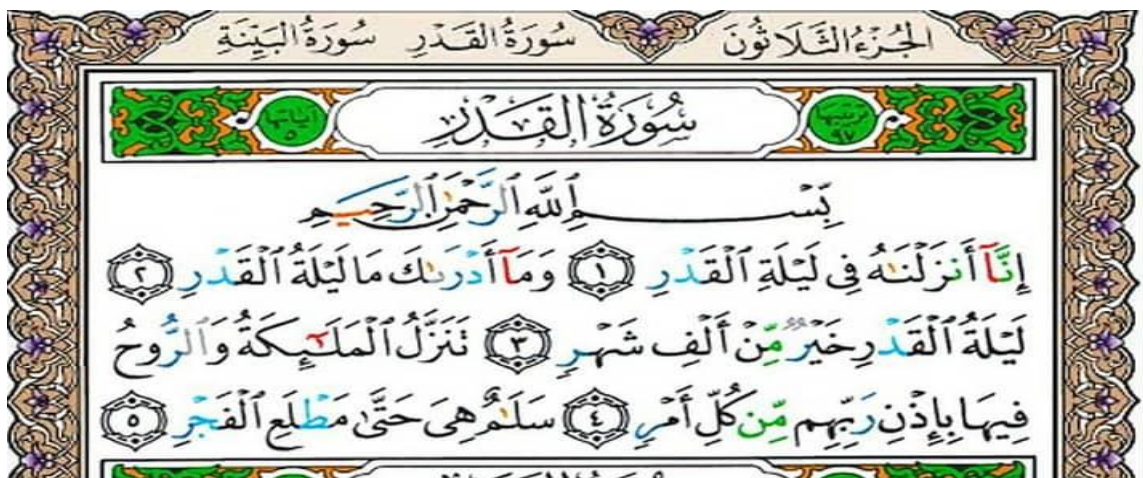 الجُزْءُ الثَّلَاثُونَ سُورَةُ القَدْرِ سُورَةُ البَيِّنَةِ
ترتيبها ٩٧ سُورَةُ القَدْرِ آياتها ٥
بِّسْمِ ٱللَّهِ ٱلرَّحْمَٰنِ ٱلرَّحِيمِ
إِنَّآ أَنزَلْنَٰهُ فِى لَيْلَةِ ٱلْقَدْرِ ١ وَمَآ أَدْرَىٰكَ مَا لَيْلَةُ ٱلْقَدْرِ ٢
لَيْلَةُ ٱلْقَدْرِ خَيْرٌ مِّنْ أَلْفِ شَهْرٍ ٣ تَنَزَّلُ ٱلْمَلَٰٓئِكَةُ وَٱلرُّوحُ
فِيهَا بِإِذْنِ رَبِّهِم مِّن كُلِّ أَمْرٍ ٤ سَلَٰمٌ هِىَ حَتَّىٰ مَطْلَعِ ٱلْفَجْرِ ٥